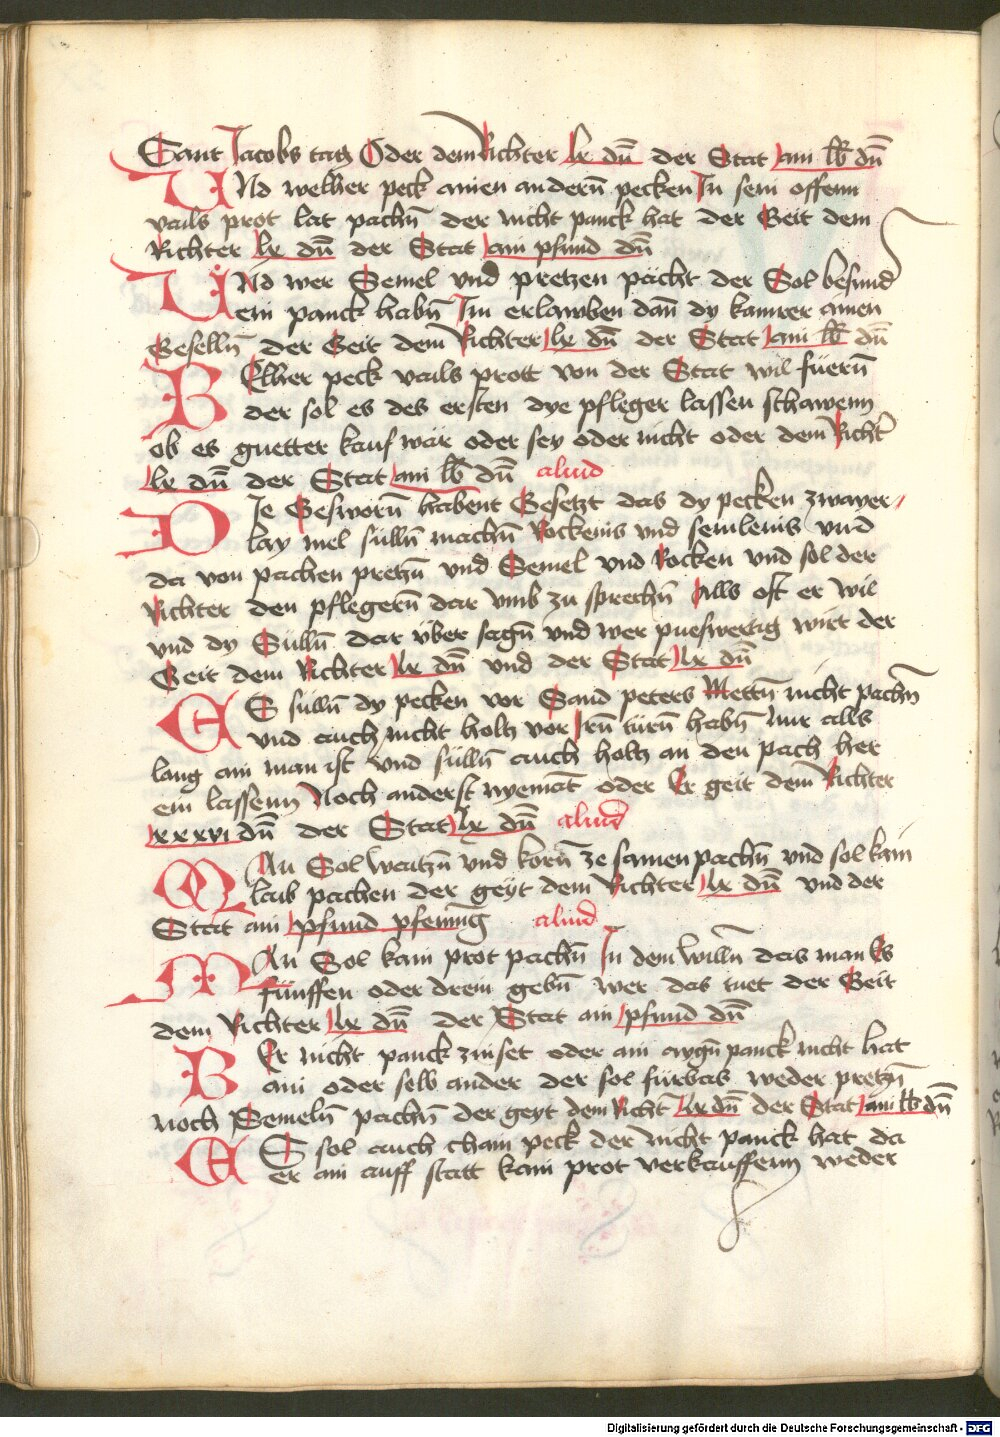 Sant Jacobs tag Oder dem Richter lx dn̄ der Stat ain lb dn̄
UNd welher peck ainen andern̄ pecken In sein offenn
vails prot lat pachn̄ der nicht panck hat der Geit dem
Richter lx dn̄ der Stat ain pfund dn̄
UNd wer Semel vnd pretzen pächt der Sol besund
ein panck habn̄ Im erlawben dan̄ dy kamrer ainen
Geselln̄ der Geit dem Richter lx dn̄ der Stat ain lb dn̄
WElher peck vails prott von der Stat wil füern̄
der sol es des ersten dye pfleger lassen schawenn
ob es guetter kauf wär oder sey oder nicht oder dem Richt̄
lx dn̄ der Stat ain lb dn̄ aliud
DIe Gesworn̄ habent Gesetzt das dy pecken zwayer
lay mel sülln̄ machn̄ Rockenis vnd semlenis vnd
da von pachen pretzn̄ vnd Semel vnd Rocken vnd sol der
Richter den pflegern̄ dar vmb zu sprechn̄ Alls oft er wil
vnd dy Sülln̄ dar über sagn̄ vnd wer pueswertig wirt der
Geit dem Richter lx dn̄ vnd der Stat lx dn̄
ES sülln̄ dy pecken vor Sand peters Mettn̄ nicht pachn̄
vnd auch nicht holtz vor Irn̄ türn̄ habn̄ Nur alls
lang ain man ist vnd sülln̄ auch holtz an den pach her
ein lassenn Noch anderst nyemāt oder Er geit dem Richter
xxxvi dn̄ der Stat lx dn̄ aliud
MAn Sol waitzn̄ vnd korn̄ ze samen pachn̄ vnd sol kain
laib pachen der geyt dem Richter lx dn̄ vnd der
Stat ain pfund pfening aliud
MAn Sol kain prot pachn̄ In dem willn̄ das man Es
fünffen oder drein gebn̄ wer das tuet der Geit
dem Richter lx dn̄ der Stat ain pfund dn̄
WEr nicht panck zinset oder ain aygn̄ panck nicht hat
ani oder selb ander der sol fürbas weder pretzn̄
noch Semeln̄ pachn̄ der geyt dem Richt̄ lx dn̄ der Stat ain lb dn̄
ES sol auch cham peck der nicht panck hat da
er ain auff statt kain prot verkauffenn weder
Digitalisierung gefördert durch die Deutsche Forschungsgemeinschaft - DFG